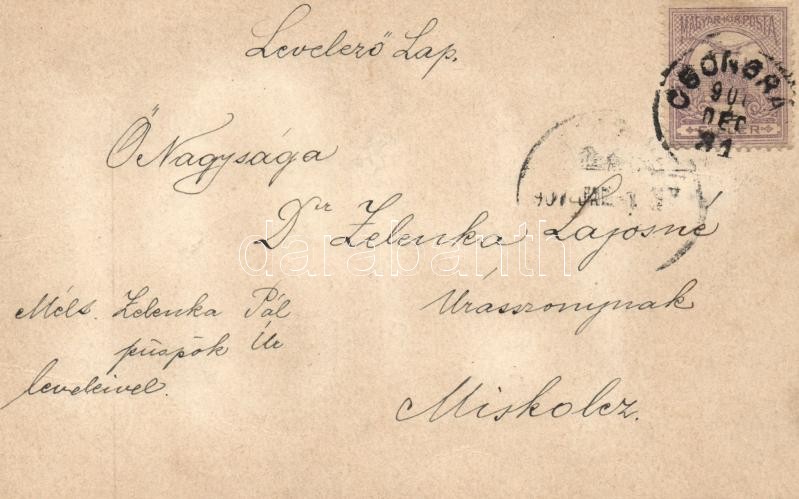 Levelező Lap.
MAGYAR KIR. POSTA
CSONGRÁ
901
DEC
31
Ő Nagysága
901 JAN. 1
Dr Zelenka Lajosné
darabanth
Úrasszonynak
Mélt. Zelenka Pál
püspök Úr
leveleivel.
Miskolcz.